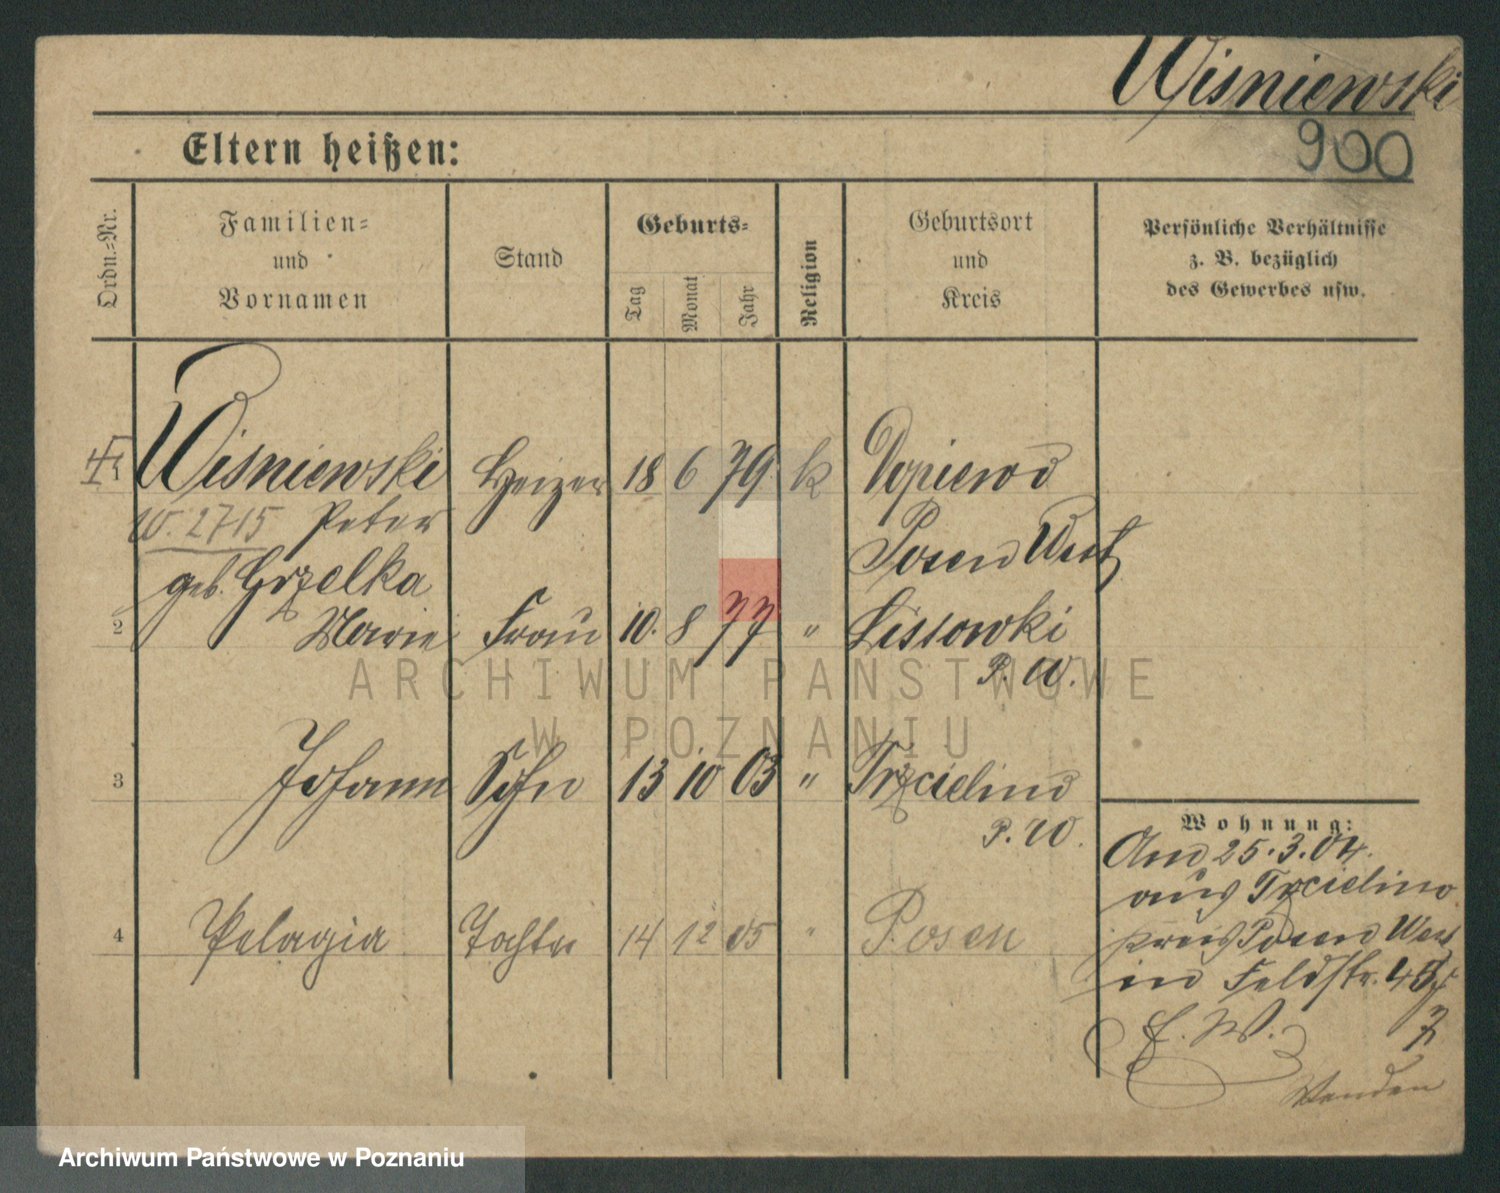 Wisniewski
900
Eltern heißen:
Ordn.-Nr.
Familien-
und
Vornamen
Stand
Geburts-
Tag
Monat
Jahr
Religion
Geburtsort
und
Kreis
Persönliche Verhältnisse
z. B. bezüglich
des Gewerbes usw.
Wisniewski Heizer 18 6 79 k Dopiewo
W. 2715 Peter
Posen West
geb. Grzelka
2 Marie Frau 10. 8 77 " Lissowki
P. W.
3 Johann Sohn 13 10 03 " Trzcielino
P. W.
4 Pelagia Tochter 14 12 05 " Posen
Wohnung:
25.3.04.
aus Trzcielino
Kreis Posen West
in Feldstr.
E. W.
Wenden
ARCHIWUM PAŃSTWOWE
W POZNANIU
Archiwum Państwowe w Poznaniu